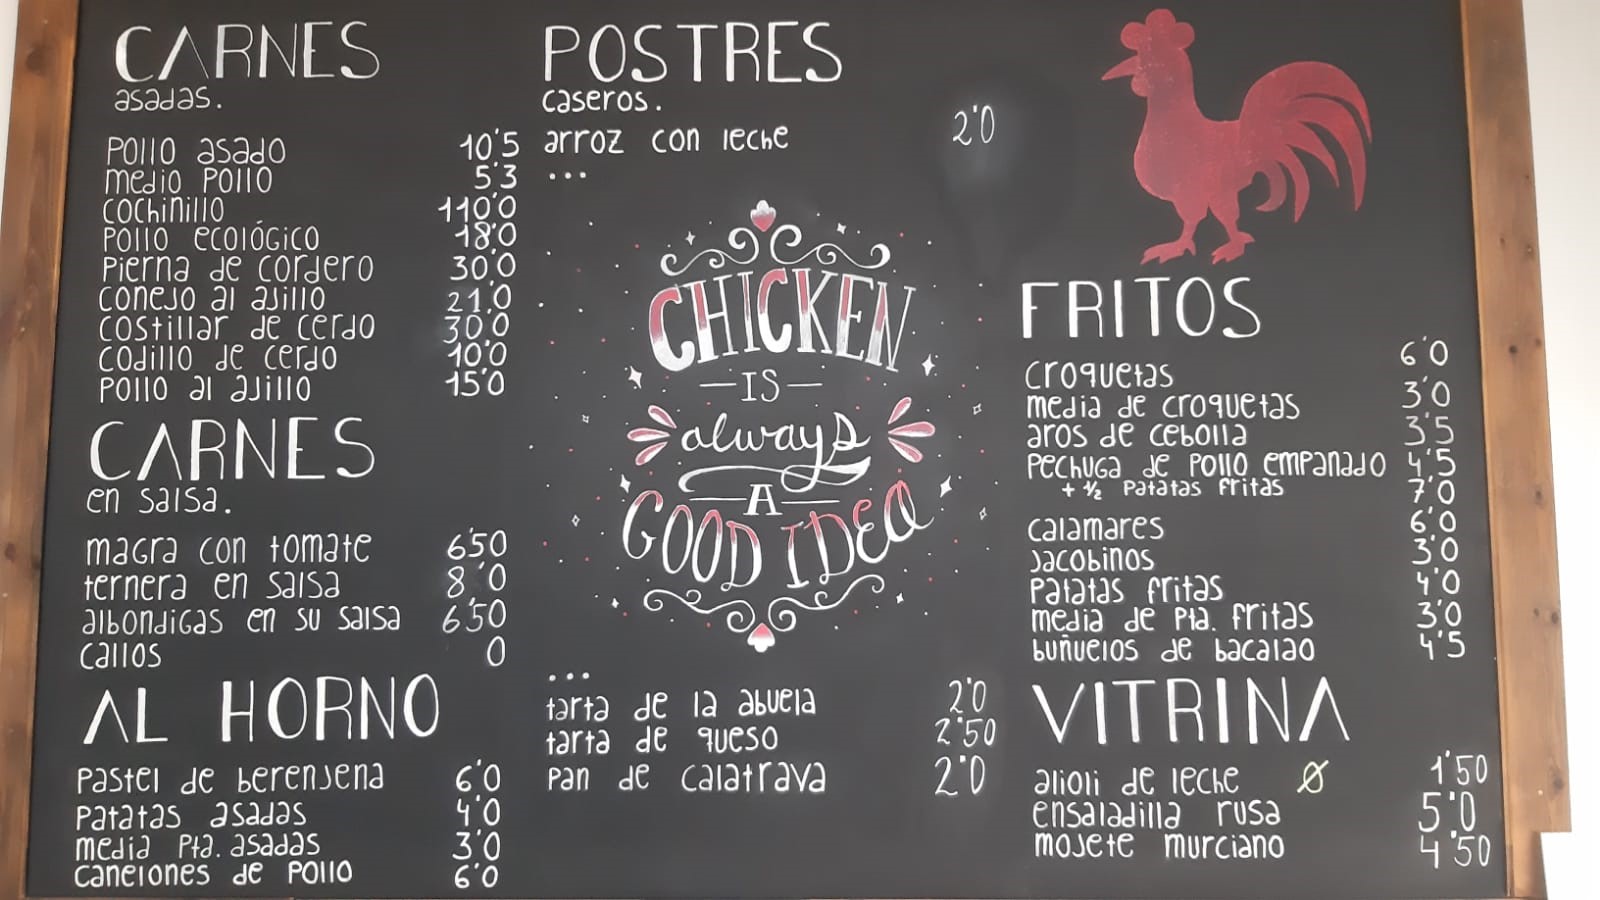 CARNES
asadas.
Pollo asado 10'5
medio Pollo 5'3
cochinillo 110'0
Pollo ecológico 18'0
Pierna de cordero 30'0
conejo al ajillo 21'0
costillar de cerdo 30'0
codillo de cerdo 10'0
Pollo al ajillo 15'0
CARNES
en salsa.
magra con tomate 6'50
ternera en salsa 8'0
albondigas en su salsa 6'50
callos 0
AL HORNO
Pastel de berenjena 6'0
Patatas asadas 4'0
media Pta. asadas 3'0
canelones de Pollo 6'0
POSTRES
caseros.
arroz con leche 2'0
...
CHICKEN
IS
always
A
GOOD IDEA
...
tarta de la abuela 2'0
tarta de queso 2'50
Pan de calatrava 2'0
FRITOS
croquetas 6'0
media de croquetas 3'0
aros de cebolla 3'5
Pechuga de Pollo empanado 4'5
+ ½ Patatas fritas 7'0
calamares 6'0
jacobinos 3'0
Patatas fritas 4'0
media de Pta. fritas 3'0
buñuelos de bacalao 4'5
VITRINA
alioli de leche Ø 1'50
ensaladilla rusa 5'0
mojete murciano 4'50